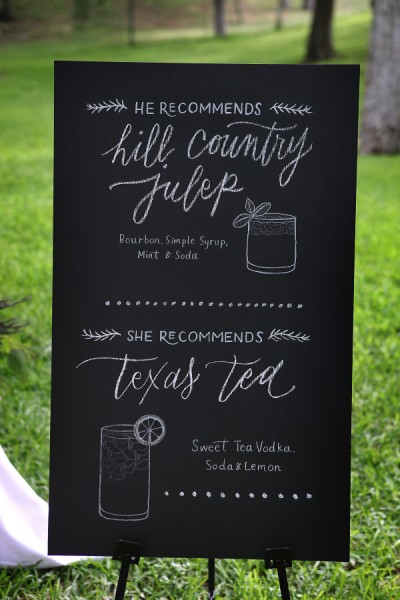 HE RECOMMENDS
hill country
julep
Bourbon, Simple Syrup,
Mint & Soda
SHE RECOMMENDS
texas tea
Sweet Tea Vodka,
Soda & Lemon